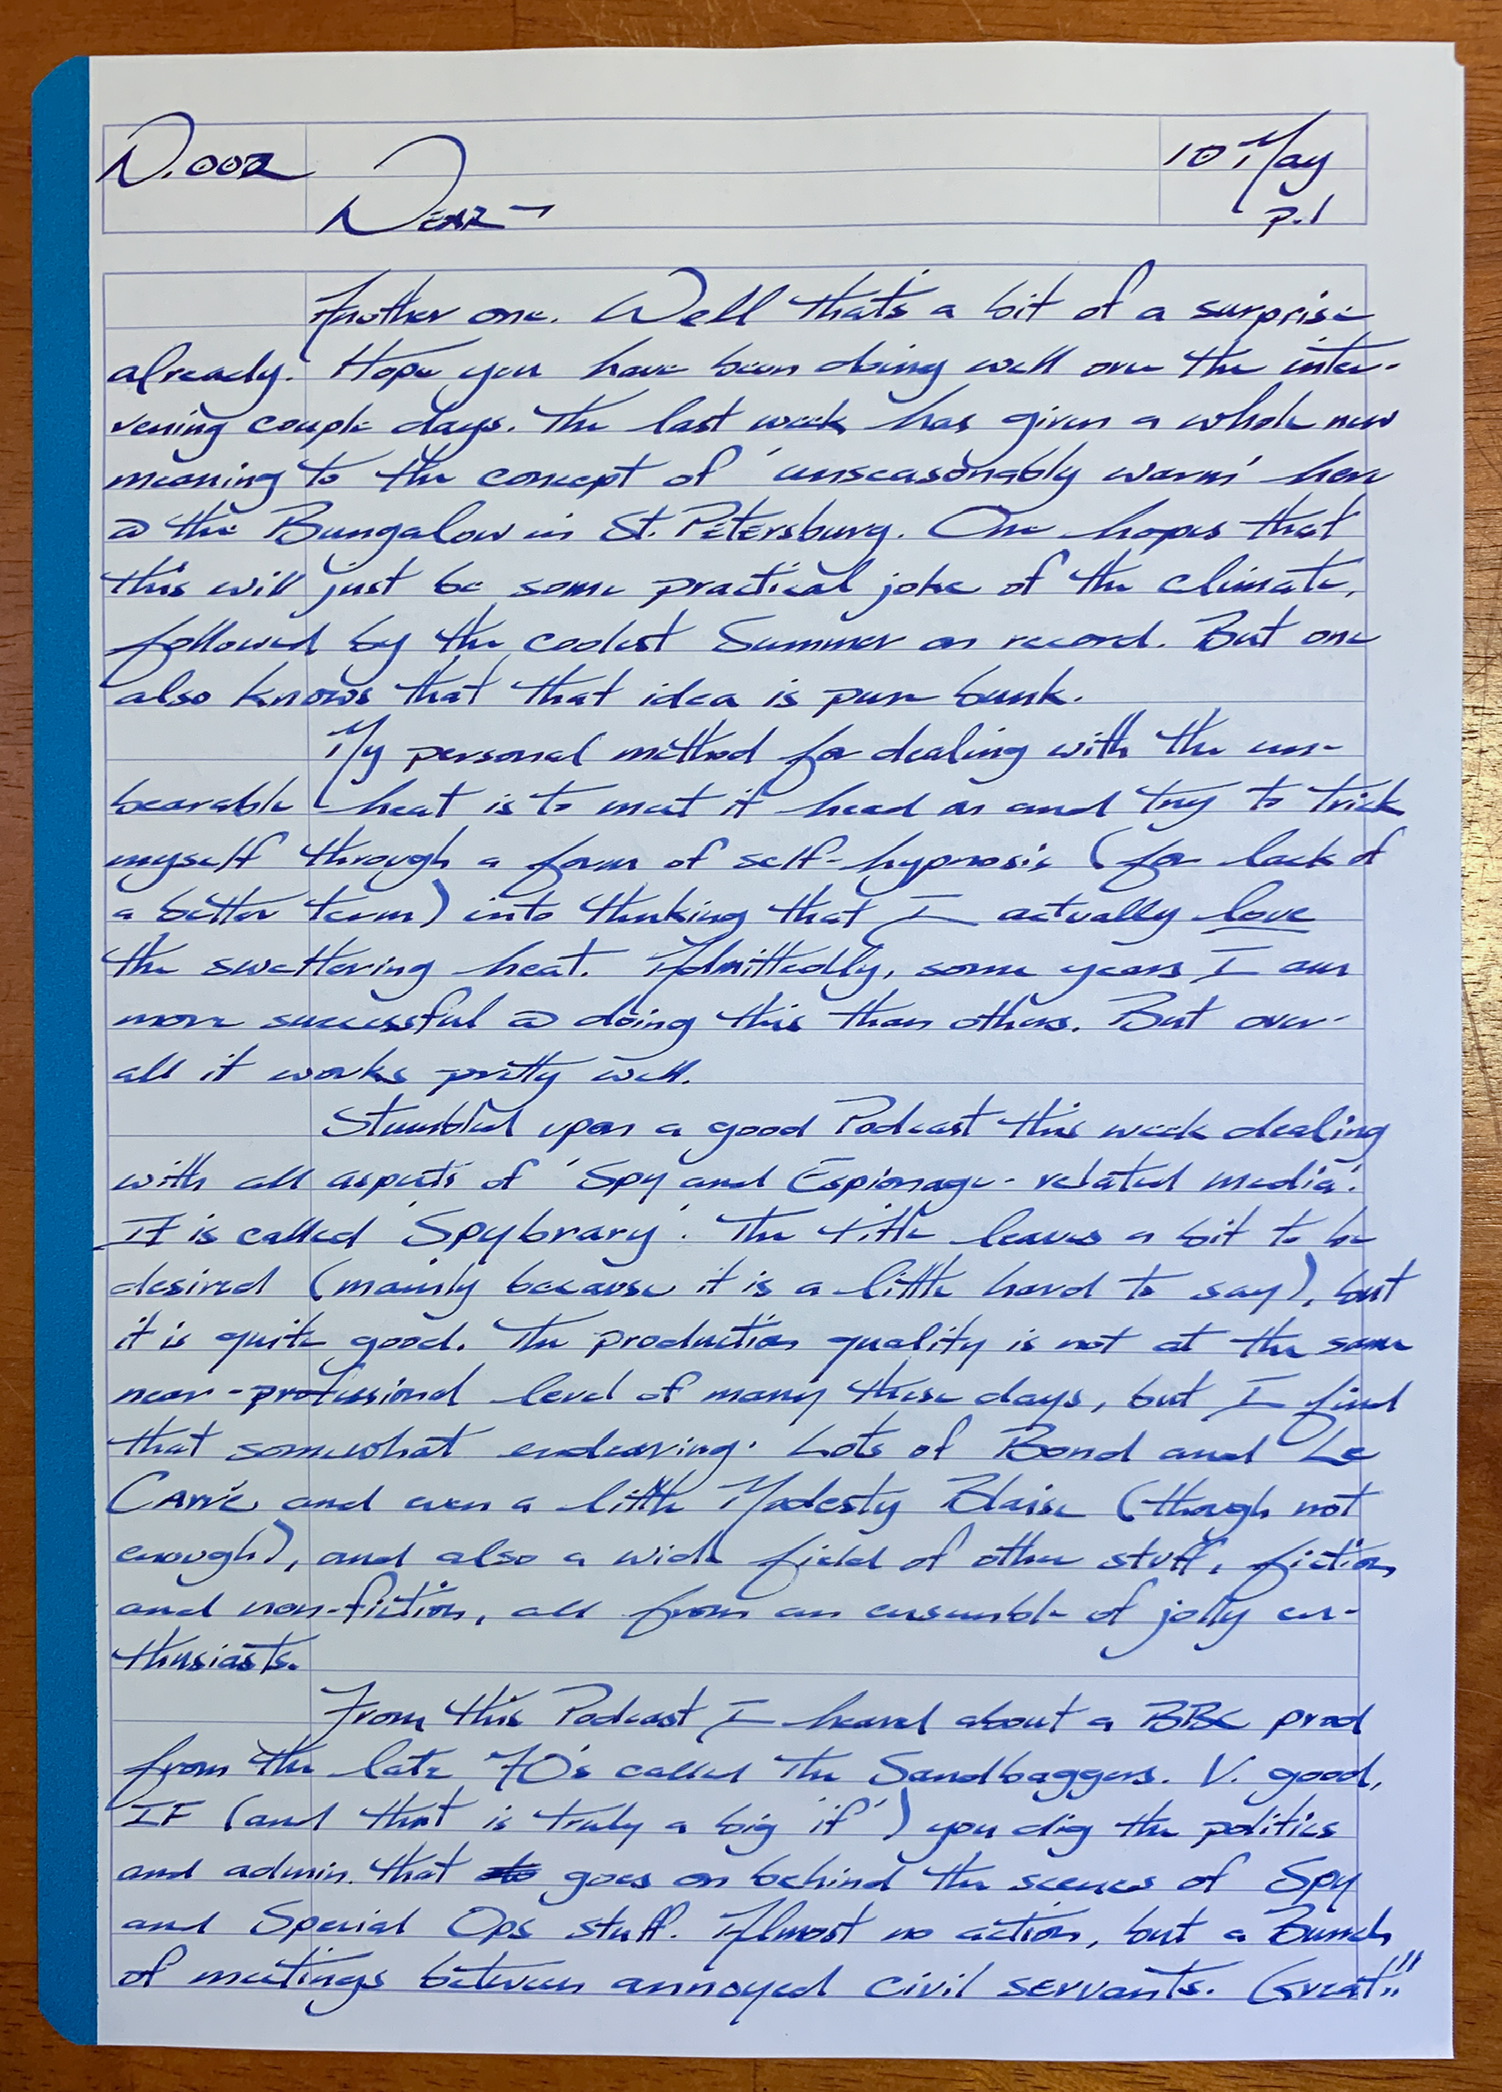 D.002
10 May
Dear—
p.1
Another one. Well that's a bit of a surprise
already. Hope you have been doing well over the inter-
vening couple days. The last week has given a whole new
meaning to the concept of 'unseasonably warm' here
@ the Bungalow in St. Petersburg. One hopes that
this will just be some practical joke of the climate,
followed by the coolest Summer on record. But one
also knows that that idea is pure bunk.
My personal method for dealing with the un-
bearable heat is to meet it head on and try to trick
myself through a form of self-hypnosis (for lack of
a better term) into thinking that I actually love
the sweltering heat. Admittedly, some years I am
more successful @ doing this than others. But over-
all it works pretty well.
Stumbled upon a good Podcast this week dealing
with all aspects of 'Spy and Espionage-related media'.
It is called 'Spybrary'. The title leaves a bit to be
desired (mainly because it is a little hard to say), but
it is quite good. The production quality is not at the same
near-professional level of many these days, but I find
that somewhat endearing. Lots of Bond and Le
Carré and even a little Modesty Blaise (though not
enough), and also a wide field of other stuff, fiction
and non-fiction, all from an ensemble of jolly en-
thusiasts.
From this Podcast I heard about a BBC prod
from the late 70's called The Sandbaggers. V. good,
IF (and that is truly a big 'if') you dig the politics
and admin. that goes on behind the scenes of Spy
and Special Ops stuff. Almost no action, but a Bunch
of meetings between annoyed civil servants. Great!!